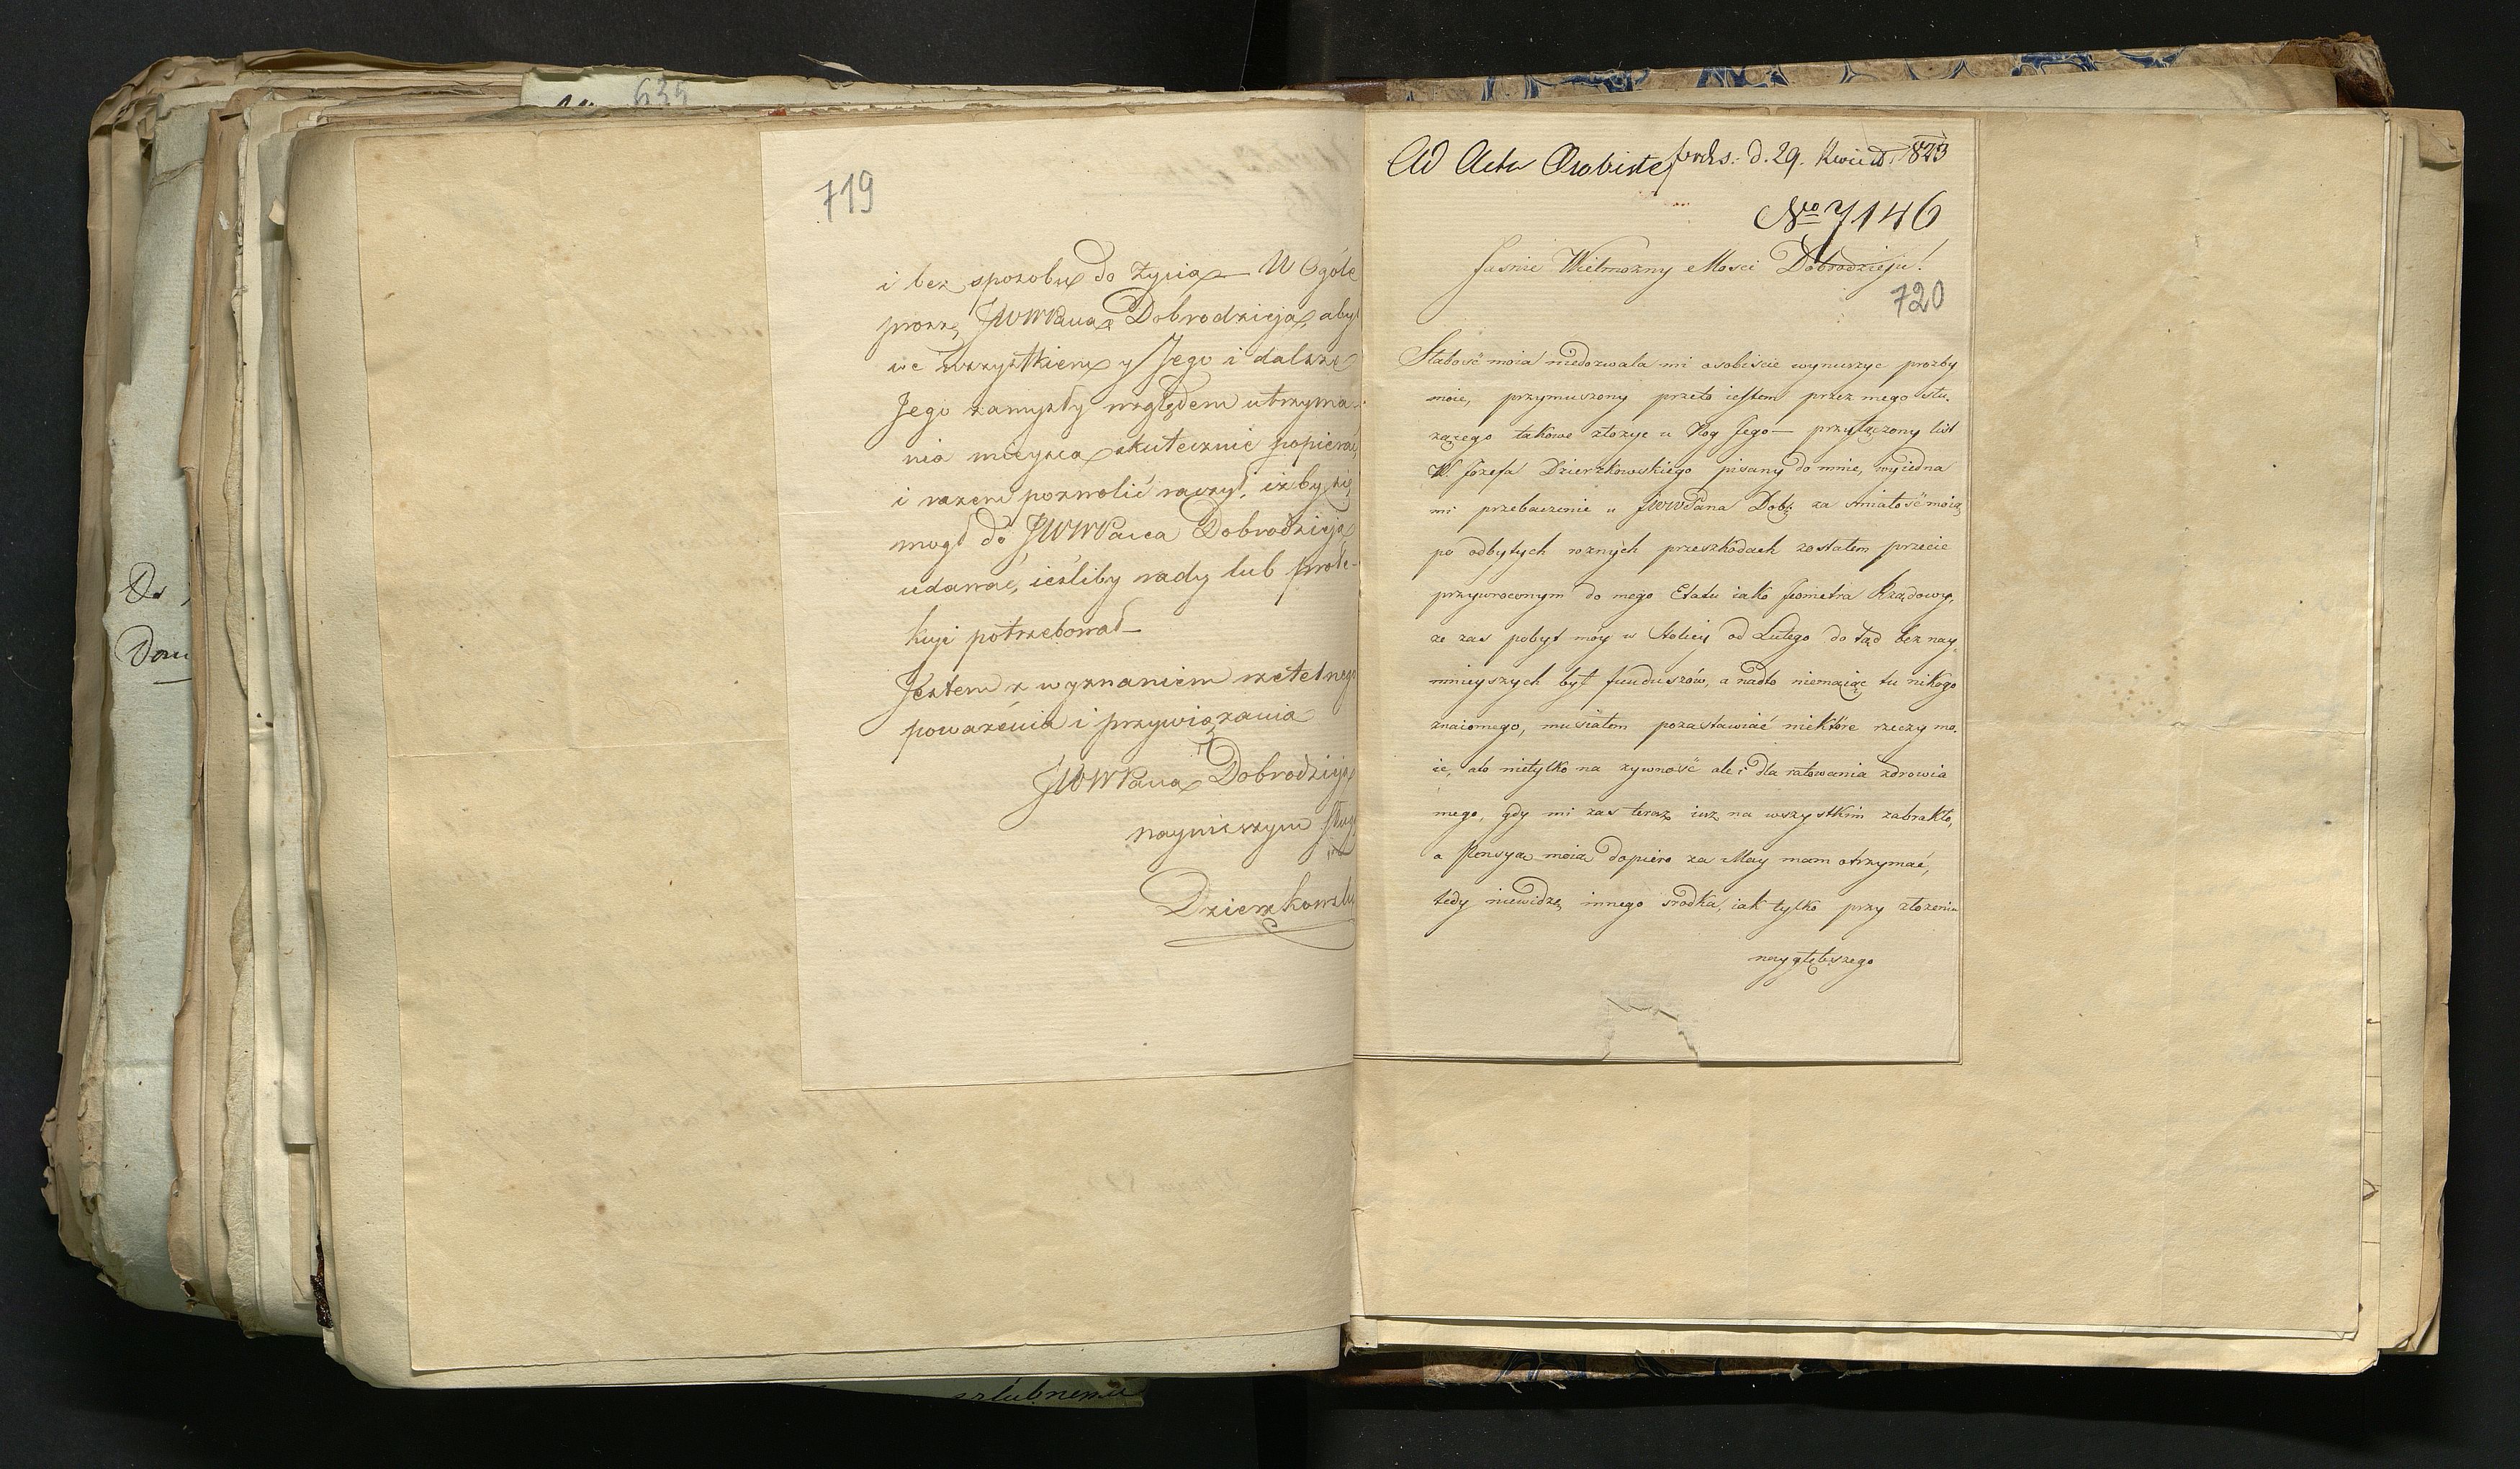 635
719
i bez sposobu do życia — W Ogóle
proszę JWWPana Dobrodzieja, aby
we wszystkiem y Jego i dalsze
Jego zamysły względem utrzyma-
nia mieysca skutecznie popierać
i razem pozwolić raczył, iżby się
mógł do JWWPana Dobrodzieja
udawać, ieśliby rady lub prote-
kcyi potrzebował —
Jestem z wyznaniem rzetelnego
poważenia i przywiązania
JWWPana Dobrodzieja
nayniższym sługą
Dzierzkowski
Do
Dom
szlubnemu
Ad Acta Osobiste prds: d. 29. Kwiet. 1823
Nro 7146
Jasnie Wielmożny Mosci Dobrodzieju!
720
Słabość moia niedozwala mi osobiscie wynurzyc prozby
moie, przymuszony przeto iestem przez mego słu-
zącego takowe złożyc u Nog Jego — przyłączony list
W. Jozefa Dzierzkowskiego pisany do mnie, wyiedna
mi przebaczenie u JWWPana Dobr: za smiałość moią
po odbytych roznych przeszkodach zostałem przecie
przywroconym do mego Etatu iako Jeometra Rządowy,
ze zas pobyt moy w Stolicy od Lutego do tąd bez nay-
mnieyszych był funduszow, a nadto niemaiąc tu nikogo
znaiomego, musiałem pozastawiać niektóre rzeczy mo-
ie, ato nietylko na zywność ale i dla ratowania zdrowia
mego, gdy mi zas teraz iuz na wszystkim zabrakło,
a Pensya moia dopiero za May mam otrzymać,
tedy niewidzę innego srodka, iak tylko przy złozeniu
naygłębszego